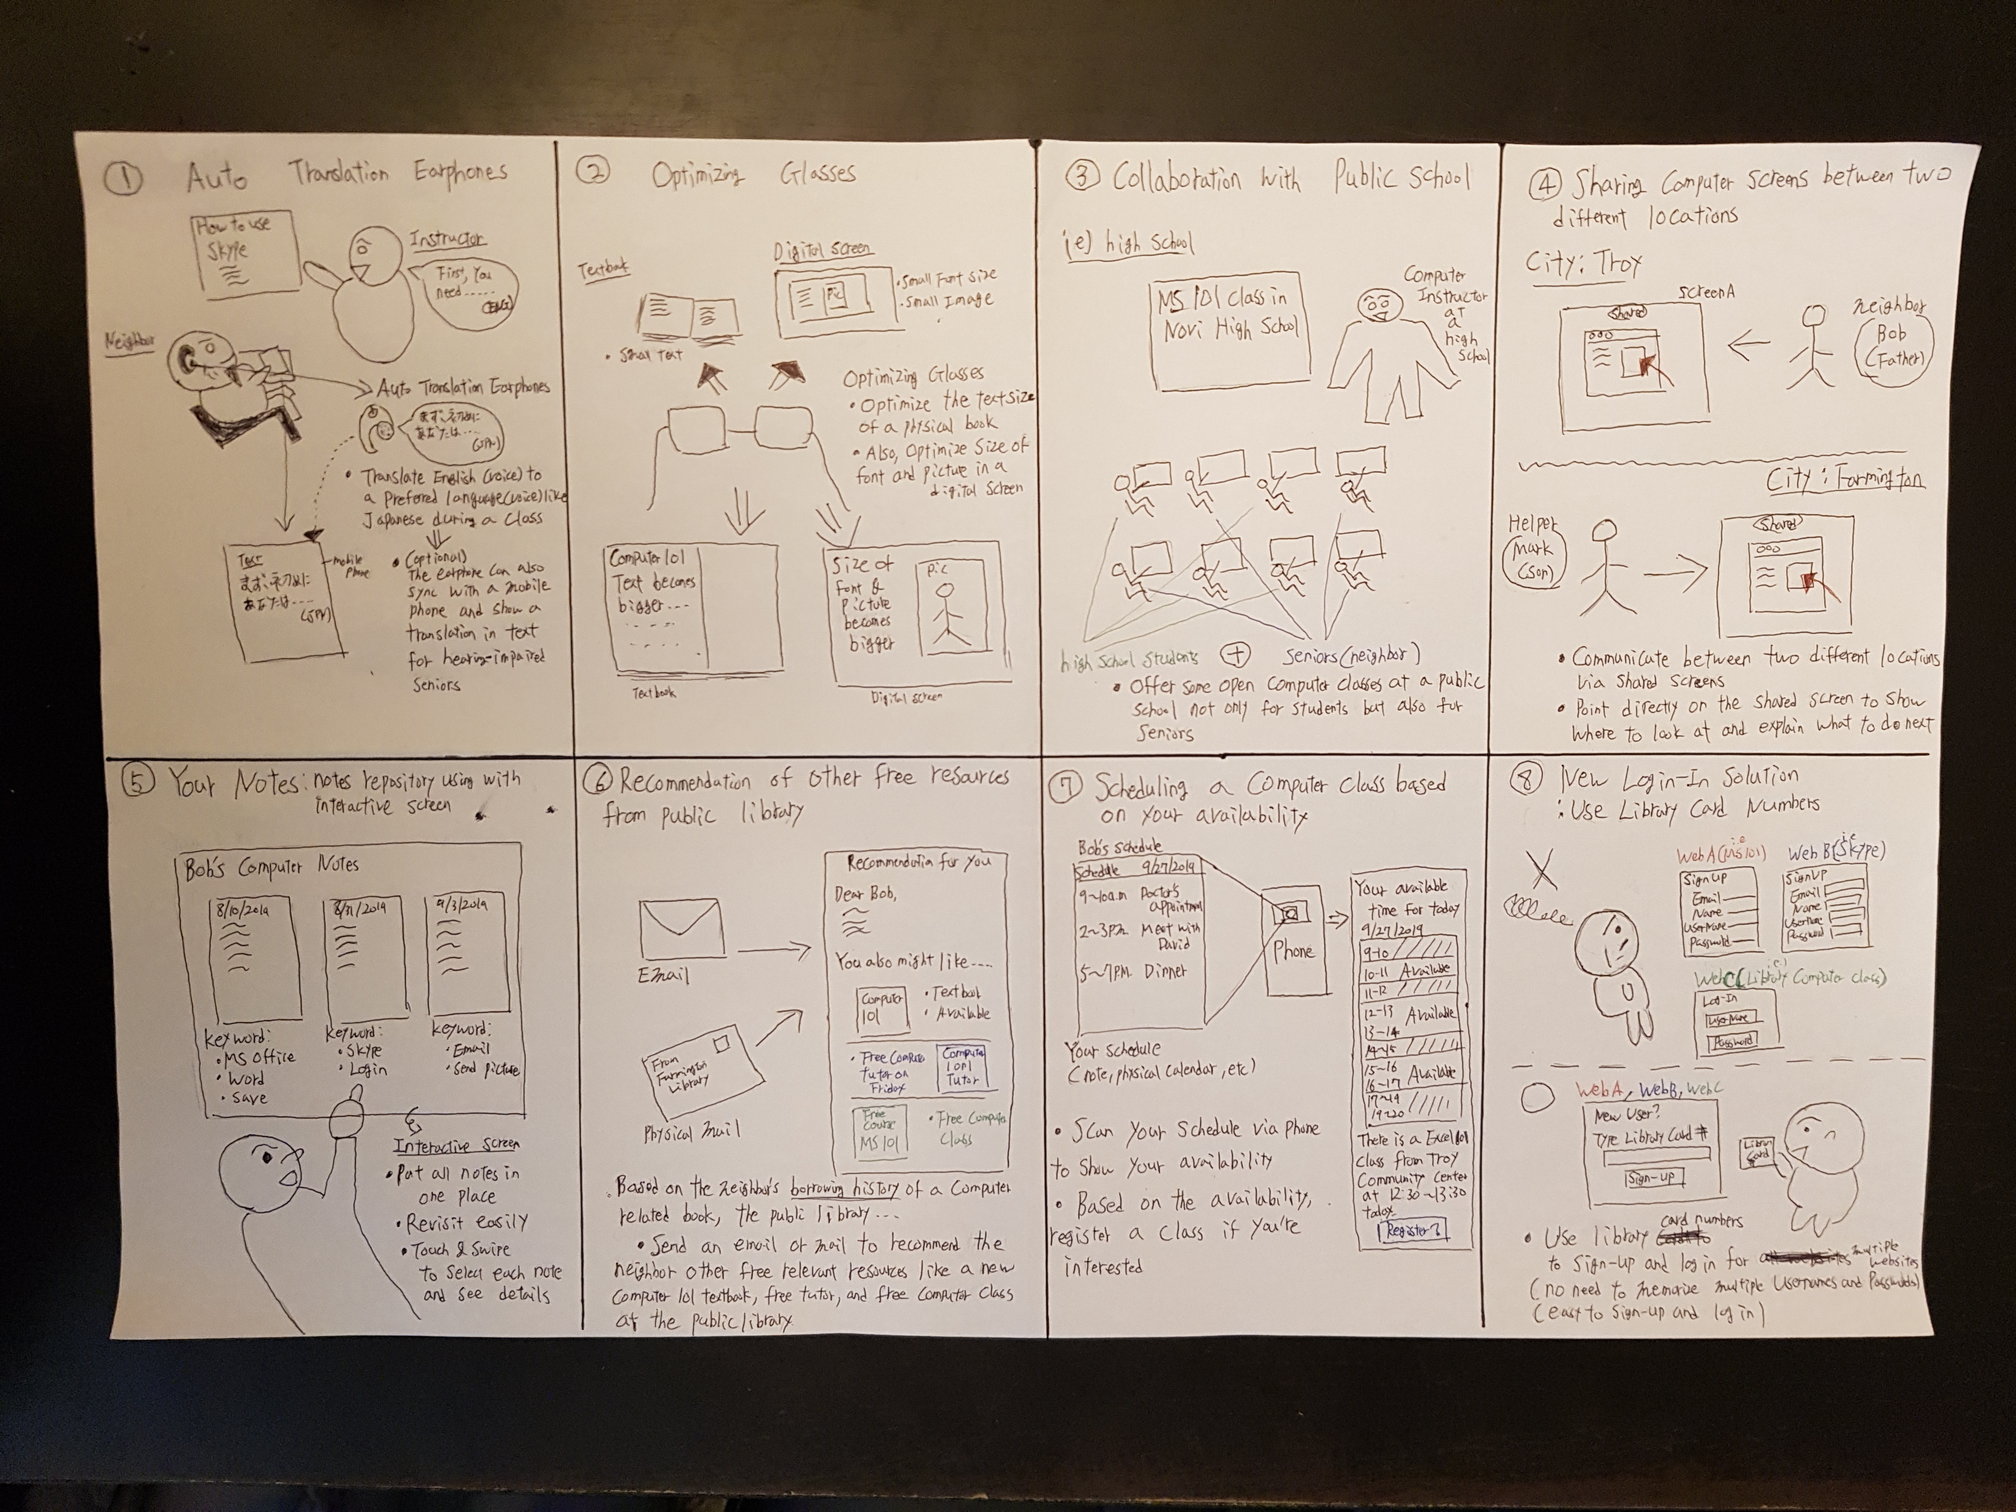 ① Auto Translation Earphones
How to use
Skype
Instructor
First, you
need ......
(ENG)
Neighbor
Auto Translation Earphones
まず、初めに
あなたは....
(JPN)
• Translate English (voice) to
a prefered language (voice) like
Japanese during a class
• (optional)
The earphone can also
sync with a mobile
phone and show a
translation in text
for hearing-impaired
seniors
Text
まず、初めに
あなたは....
(JPN)
mobile
phone
② Optimizing Glasses
Textbook
• Small Text
Digital screen
Pic
• Small Font Size
• Small Image
Optimizing Glasses
• Optimize the text size
of a physical book
• Also, Optimize Size of
font and picture in a
digital screen
Computer 101
Text becomes
bigger ....
Textbook
Size of
font &
picture
becomes
bigger
Pic
Digital screen
③ Collaboration with Public School
ie) high school
MS 101 Class in
Novi High School
Computer
Instructor
at
a
high
school
high school students
+
Seniors (neighbor)
• Offer some open computer classes at a public
school not only for students but also for
seniors
④ Sharing Computer Screens between two
different locations
City: Troy
Screen A
Shared
neighbor
Bob
(Father)
City: Farmington
Helper
Mark
(Son)
Shared
• Communicate between two different locations
via shared screens
• Point directly on the shared screen to show
where to look at and explain what to do next
⑤ Your Notes: notes repository using with
interactive screen
Bob's Computer Notes
8/10/2019
8/31/2019
9/3/2019
Keyword:
• MS Office
• Word
• Save
Keyword:
• Skype
• Login
Keyword:
• Email
• Send picture
Interactive screen
• Put all notes in
one place
• Revisit easily
• Touch & Swipe
to select each note
and see details
⑥ Recommendation of other free resources
from public library
Email
From
Farmington
Library
Physical mail
Recommendation for you
Dear Bob,
You also might like ....
Computer
101
• Textbook
• Available
• Free Computer
tutor on
Friday
Computer
101
Tutor
Free
Course
MS 101
• Free Computer
Class
• Based on the neighbor's borrowing history of a computer
related book, the public library ...
• Send an email or mail to recommend the
neighbor other free relevant resources like a new
computer 101 textbook, free tutor, and free computer class
at the public library
⑦ Scheduling a Computer Class based
on your availability
Bob's schedule
Schedule 9/27/2019
9~10a.m Doctor's
appointment
2~3P.M. Meet with
David
5~7PM. Dinner
Your schedule
(note, physical calendar, etc)
Phone
Your available
time for today
9/27/2019
9-10
10-11 Available
11-12
12-13 Available
13-14
14-15
15-16
16-17 Available
17-19
19-20
There is a Excel 101
class from Troy
Community Center
at 12:30~13:30
today.
Register?
• Scan your schedule via phone
to show your availability
• Based on the availability,
register a class if you're
interested
⑧ New Login-In Solution
: Use Library Card Numbers
Web A (ie MS 101)
Sign up
Email
Name
Username
Password
Web B (ie Skype)
Sign UP
Email
Name
Username
Password
Web C (ie) Library Computer Class)
Log-In
User Name
Password
Web A, Web B, Web C
New User?
Type Library Card #
Sign-up
Library
Card
• Use library card numbers
to sign-up and log in for multiple
websites
(no need to memorize multiple Usernames and Passwords)
(easy to sign-up and log in)